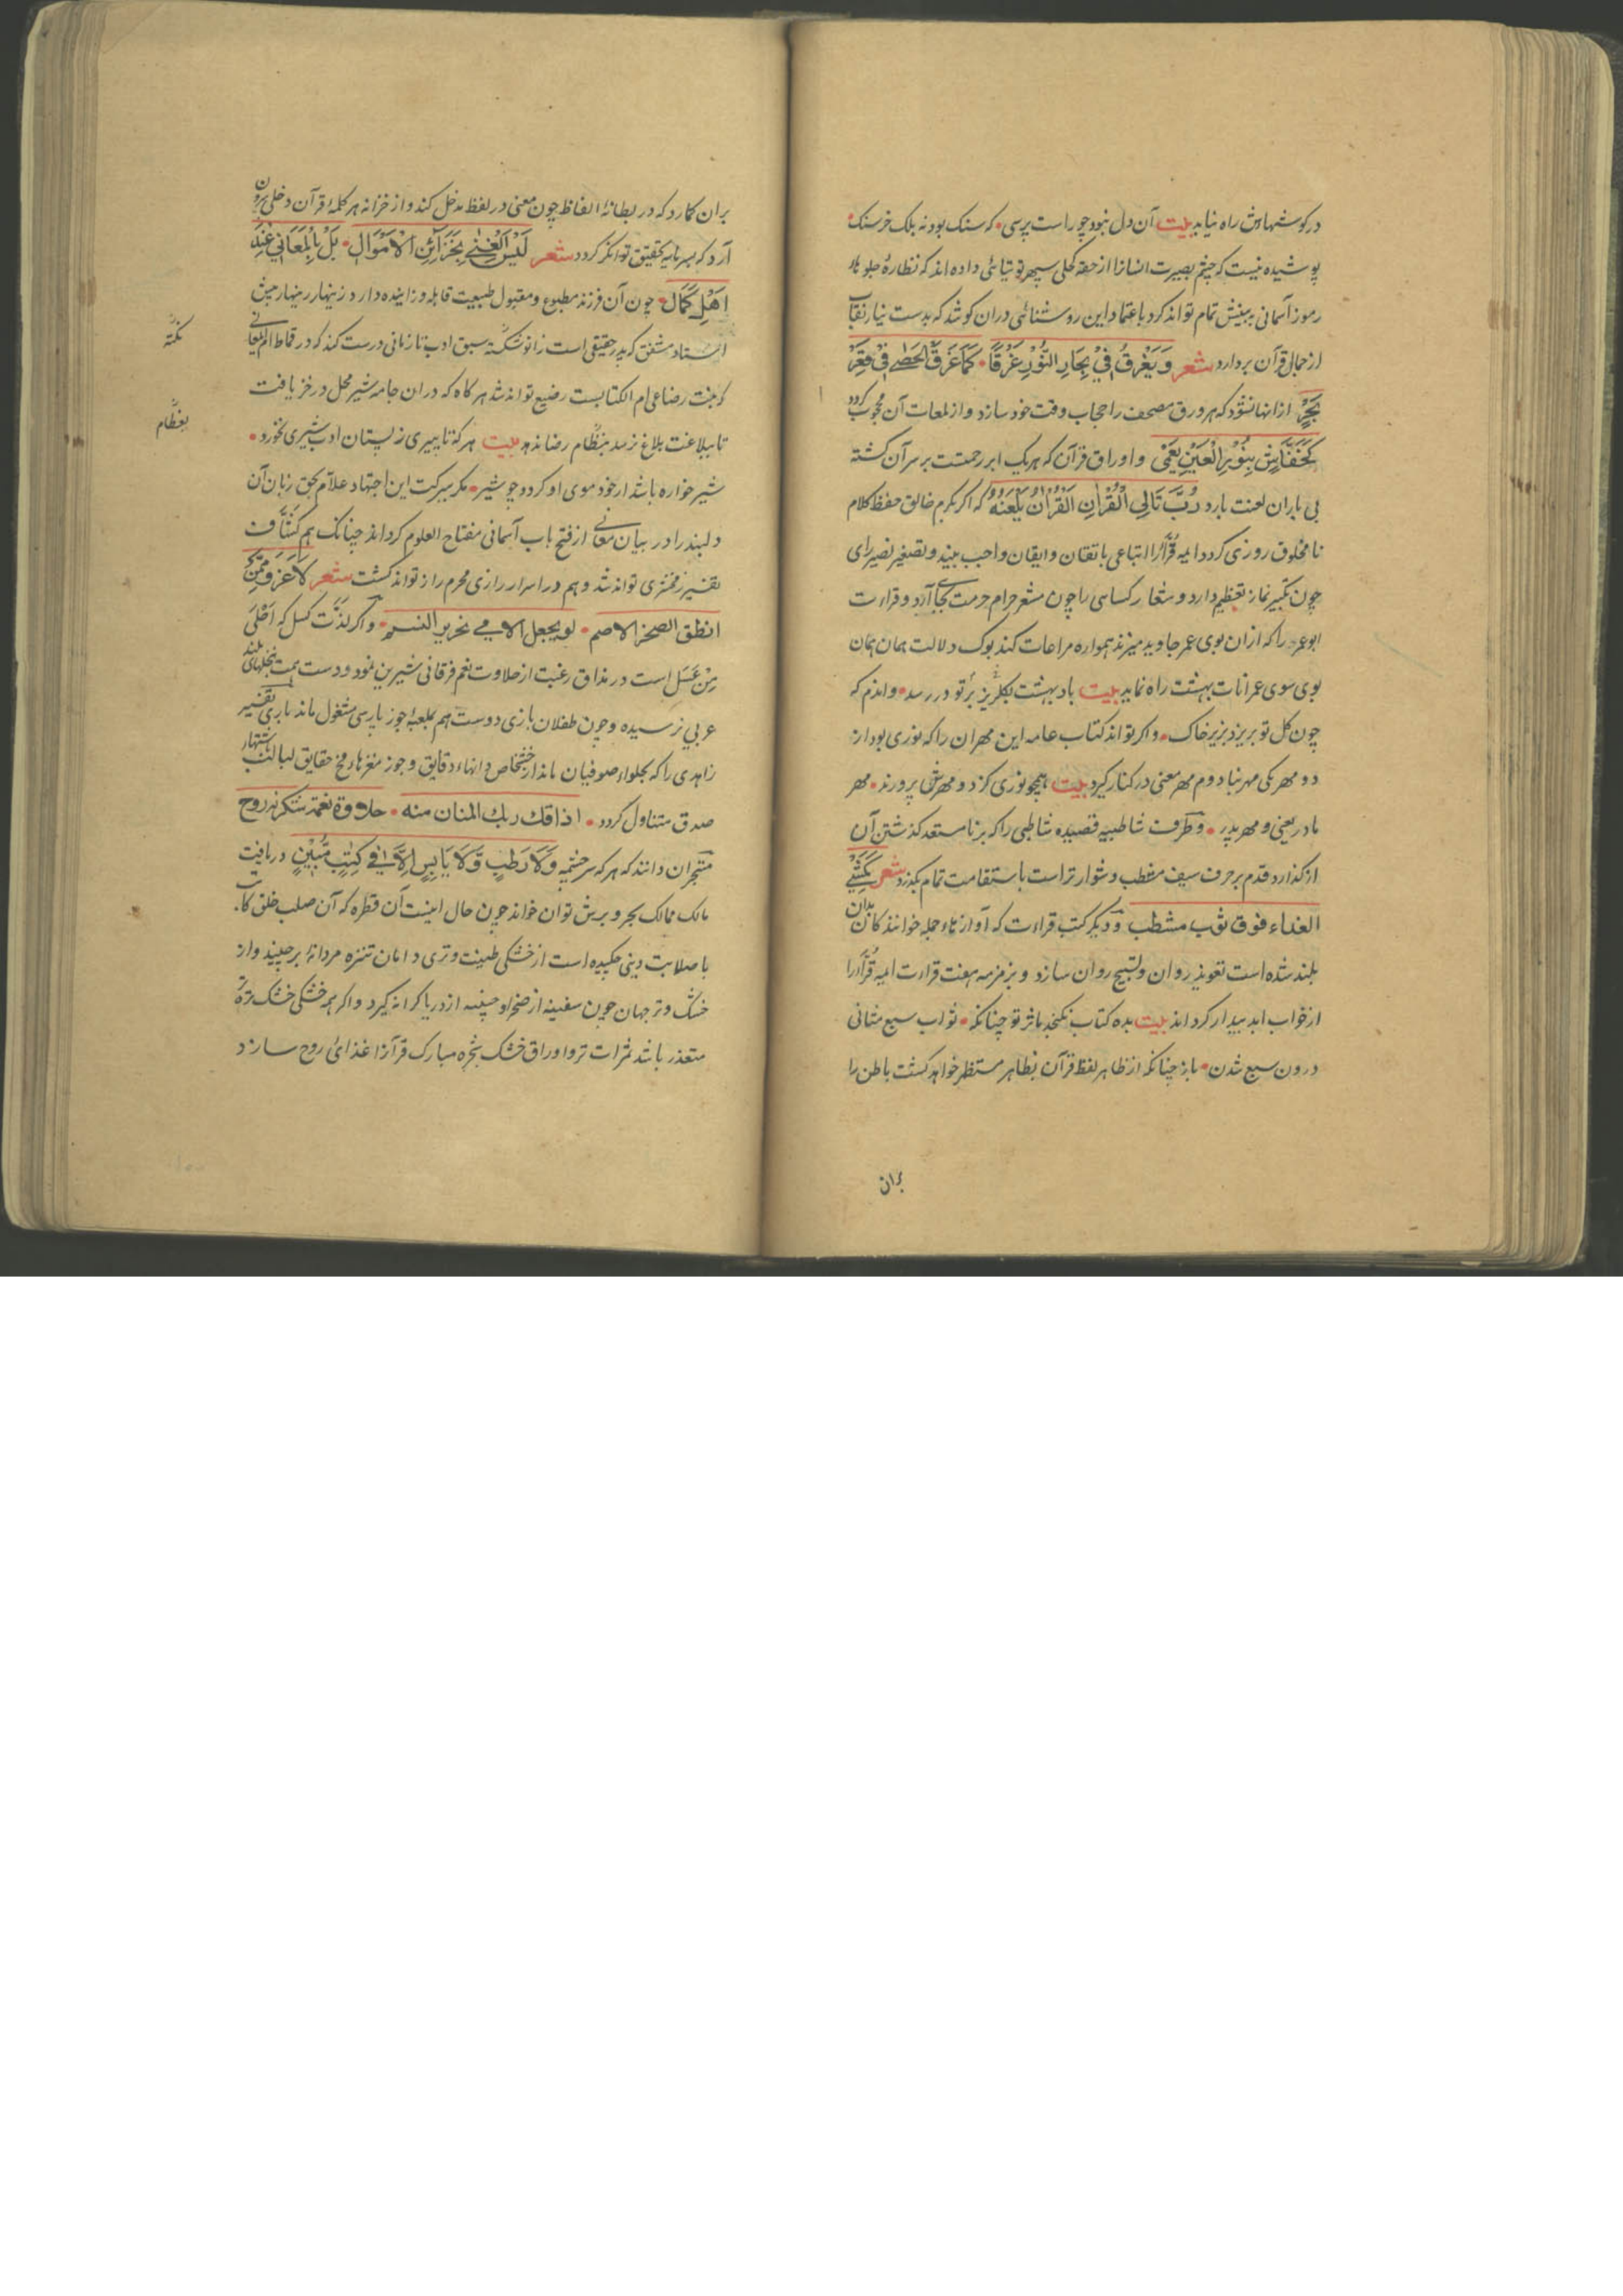 در گوشهاش راه نیابد بیت آن دل نبود چو راست پرسی • که سنک بود نه بلک خرسنک •
پوشیده نیست که چشم بصیرت انسانرا از حقه کحلی سپهر توتیائی داده اند که نظاره جلوه
رموز آسمانی ببینش تمام تواند کرد باعتماد این روشنائی دران کوشد که بدست نیاز نقاب
از جمال قرآن بردارد شعر وَیَغْرِقُ فِیْ بِحَارِ النُّوْرِ غَرْقًا • کَمَا غَرَقَ الحَصٰی فِیْ قَعْرِ
بَحْرٍ ازانها نشود که هر ورق مصحف را حجاب وقت خود سازد و از لمعات آن محجوب کردد
کَخُفَّاشٍ بِنُوْرِ الْعَیْنِ یَعْمٰی و اوراق قرآن که هر یک ابر رحمتست بر سر آن کشته
بی باران لعنت بارد رُبَّ تَالِی الْقُرْاٰنِ الْقُرْاٰنُ یَلْعَنُهُ که اکر بکرم خالق حفظ کلام
نا مخلوق روزی کردد ایمه قُرّآرا اتباعی باتقان و ایقان واجب بیند و تصغیر نصیر رای
چون تکبیر نماز تعظیم دارد و شعار کسایی را چون مشعر حرام حرمت بجا آرد و قراءت
ابو عمرو را که ازان بوی عمر جاوید میزند همواره مراعات کند بوک دلالت همان همان
بوی سوی عمرانات بهشت راه نماید بیت باد بهشت بکلریز بر تو در رسد • واندم که
چون کل تو بریزد بزیر خاک • و اکر تواند کتاب عامه ابن مهران را که نوری بود از
دو مهر یکی مهر نبا دوم مهر معنی در کنار کیرد بیت هیچو نوری کزد و مهرش پرورند • مهر
مادر یعنی و مهر پدر • و ظرف شاطبیه قصیده شاطبی را که بر نا مستعد کذشتن آن
از کذارد قدم بر حرف سیف مغطب دشوارتر است باستقامت تمام بکذرد شعر کَمَشْیِ
العذاء فوق ثوب مشطب و دیکر کتب قراءت که آوازهاء جمله خوانندکان بدان
بلند شده است تعویذ روان و تسبیح روان سازد و بزمزمه هفت قراءت ایمه قُرّآرا
از خواب ابد بیدار کرداند بیت بده کتاب نکنجد ماثر تو چنانکه • ثواب سبع مثانی
درون سبع شدن • باز چنانکه از ظاهر لفظ قرآن بظاهر مستظهر خواهد کشت باطن را
بران
بران کمارد که در بطانهٔ الفاظ چون معنی در لفظ مدخل کند و از خزانه هر کلمهٔ قرآن دخلی بیرون
آرد که بسرمایه تحقیق توانکر کردد شعر لَیْسَ الْغِنٰی بِخَزَآئِنِ الْاَمْوَالِ • بَلْ بِالْمَعَانِی عِنْدَ
اَهْلِ کَمَالٍ • چون آن فرزند مطبوع و مقبول طبیعت قابله و زاینده دارد زینهار زینهار پیش
استاد مشفق که پدر حقیقی است زانو شکسته سبق ادب تا زمانی درست کند که در قماط ام المعانی
نکتّه
که بنت رضاعی ام الکتابست رضیع تواند شد هر کاه که دران جامه شیر محل در خز یافت
تا ببلاغت بلاغ نرسد بنظّام رضا ندهد بیت هر که تا پیری ز پستان ادب شیری نخورد •
بفطّام
شیر خواره باشد ار خود موی او کردد چو شیر • مکر ببرکت این اجتهاد علاّم بحق زبان آن
دلبند را در بیان معانی از فتح باب آسمانی مفتاح العلوم کرداند چنانک هم کشّاف
تفسیر زمخشری تواند شد و هم در اسرار رازی محرم راز تواند کشت شعر لَا غَرْوَ مِمَّنْ
انطق الصخر الاصم • لو یجعل الامی نحریر النسم • و اکر لذّت کسل که اَحْلٰی
مِنْ عَسَلِ است در مذاق رغبت از حلاوت نعم فرقانی شیرین نمود و دست همت بنخلهای بلند
عربی نرسیده و چون طفلان بازی دوست هم بلعبهٔ جوز پارسی مشغول ماند باری تفسیر
زاهدی را که بحلواء صوفیان ماند از خشخاش دانهاء دقایق و جوز مغزهاء مخ حقایق لبالب باشتهار
صدق متناول کردد • اذاقك ربك المنان منه • حلاوة نعمة شکر نه روح
متبحّران دانند که هر که سر چشمه وَلَا رَطْبٍ وَّلَا یَابِسٍ اِلَّا فِیْ کِتٰبٍ مُّبِیْنٍ دریافت
مالک ممالک بحر و برش توان خواند چون حال اینست آن قطره که آن صلب خلق کا.
با صلابت دینی چکیده است از خشکی طینت و تری دامان تنزه مردانهٔ برچیند و از
خشک و تر جهان چون سفینه از صخر او چنبه از دریا کرانه کیرد و اکر همه خشکی خشک ترّه
متعذر باشد ثمرات تر و اوراق خشک شجره مبارک قرآنرا غذائ روح سازد